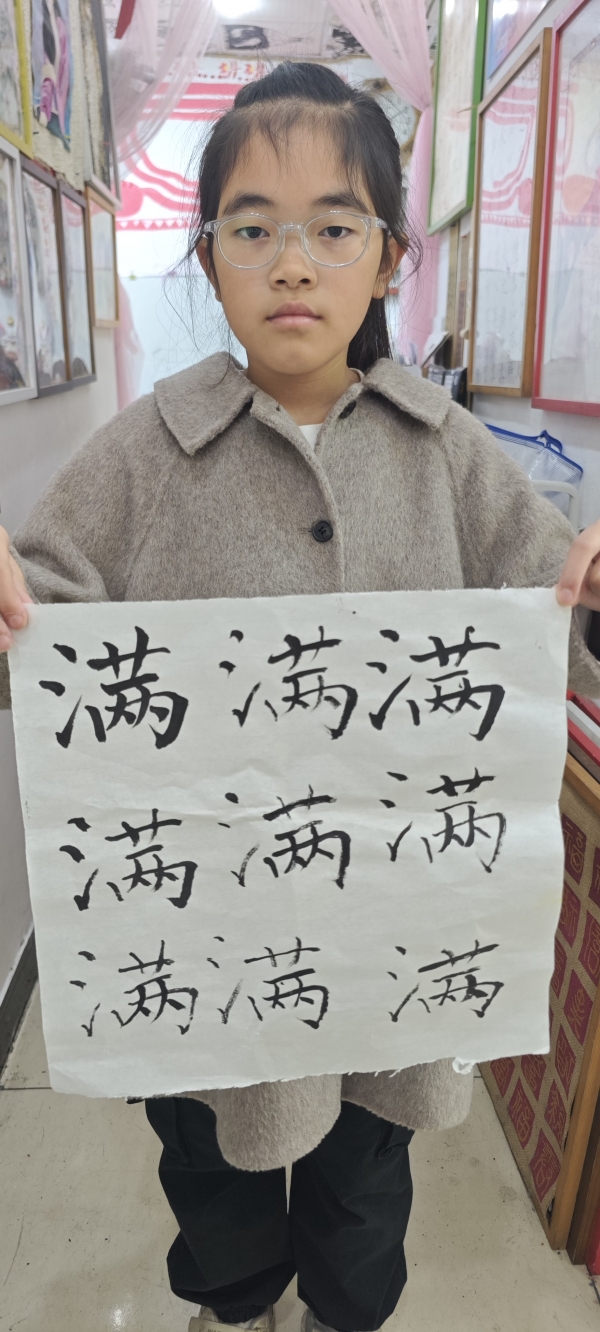 满满满
满满满
满满满